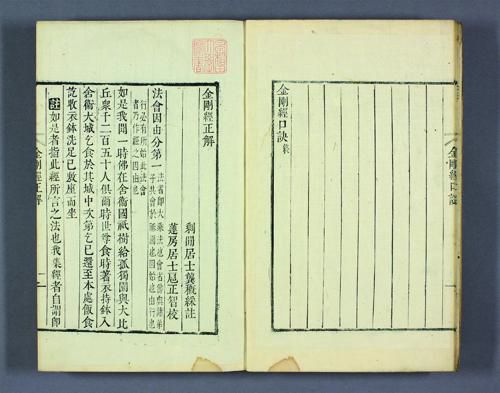 金剛經口訣
金剛經口訣終
金剛經正解
居士龔穊綵註
蓮房居士扈正智校
法會因由分第一
行必有所始此法會
者乃作經之因由也
如是我聞一時佛在舍衞國祇樹給孤獨園與大比
丘衆千二百五十人俱爾時世尊食時著衣持鉢入
舍衞大城乞食於其城中次第乞已還至本處飯食
訖收衣鉢洗足已敷座而坐
註如是者指此經所言之法也我集經者自謂即
金剛經正解
一